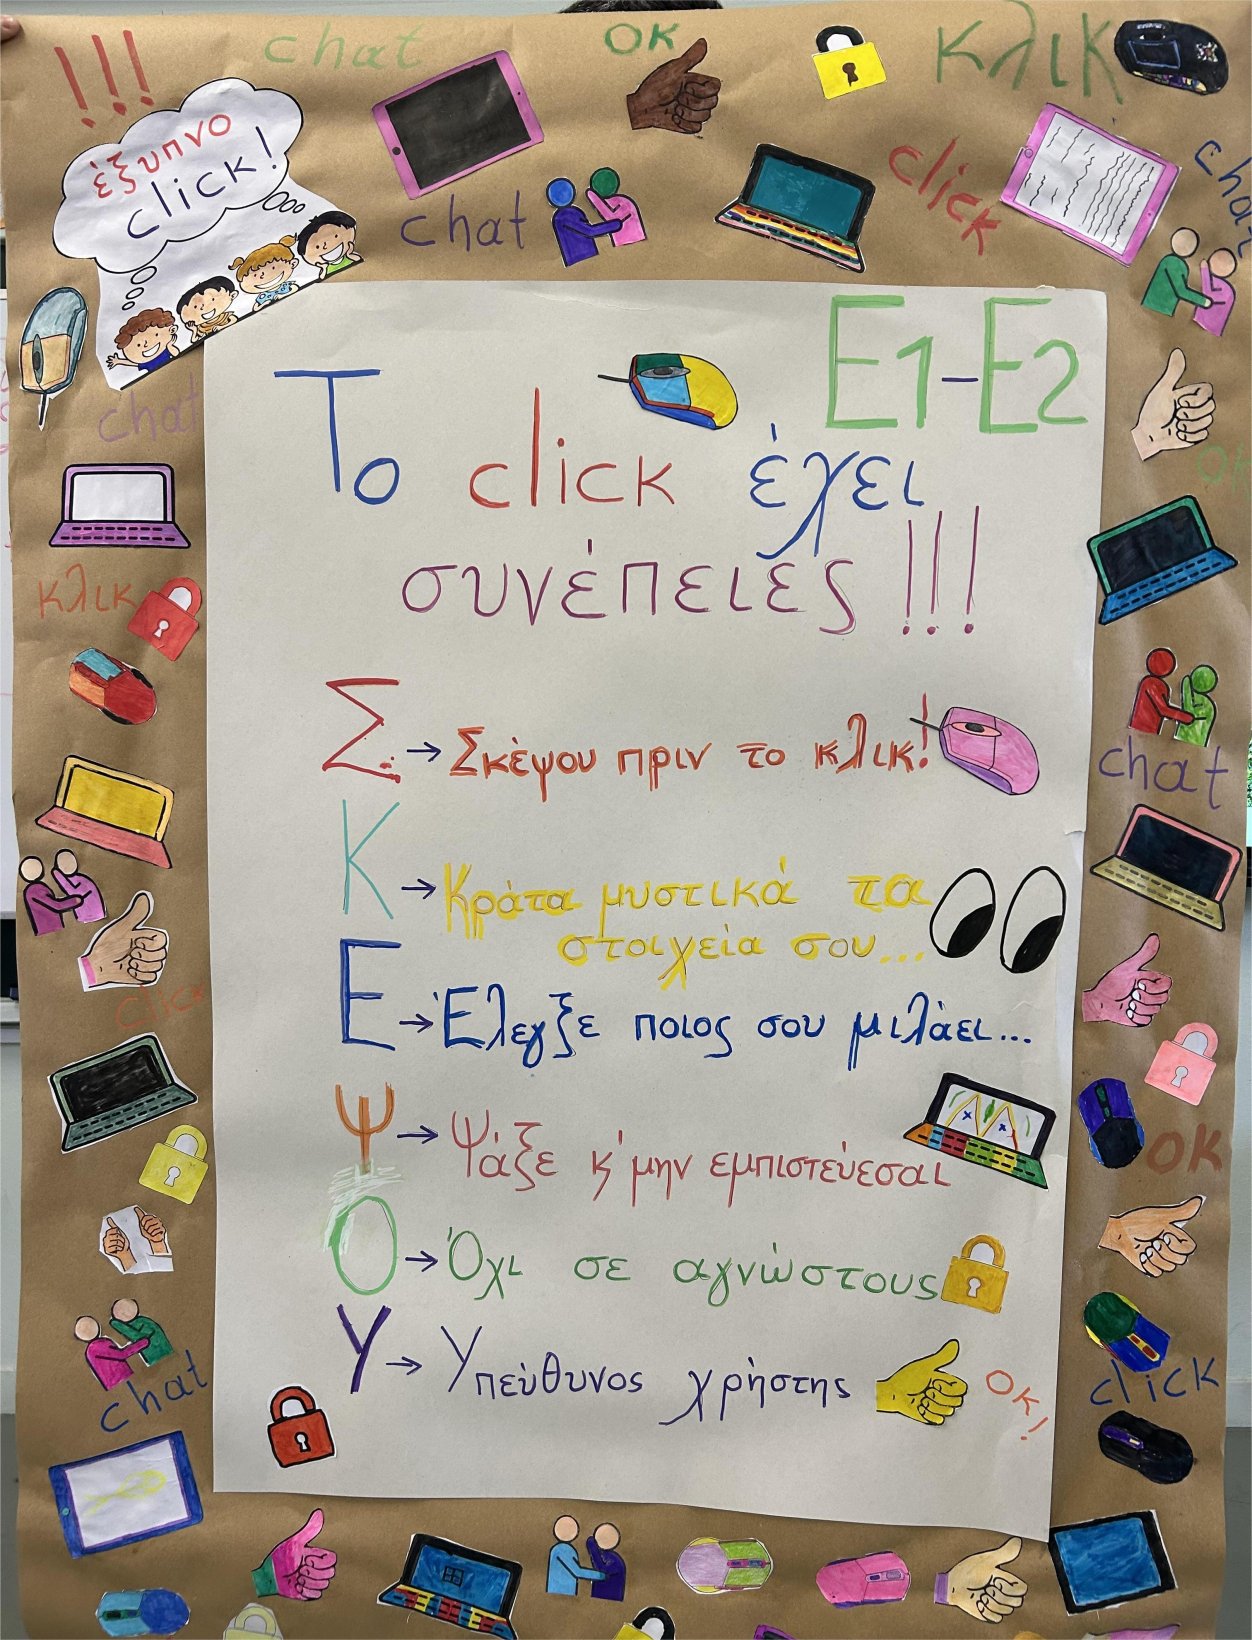 !!!
chat
OK
κλικ
έξυπνο
click!
chat
click
chat
E1-E2
Το click έχει
συνέπειες !!!
chat
OK
κλικ
Σ → Σκέψου πριν το κλικ!
chat
Κ → Κράτα μυστικά τα
στοιχεία σου...
click
Ε → Έλεγξε ποιος σου μιλάει...
Ψ → Ψάξε κ' μην εμπιστεύεσαι
OK
Ο → Όχι σε αγνώστους
Υ → Υπεύθυνος χρήστης
OK!
chat
click